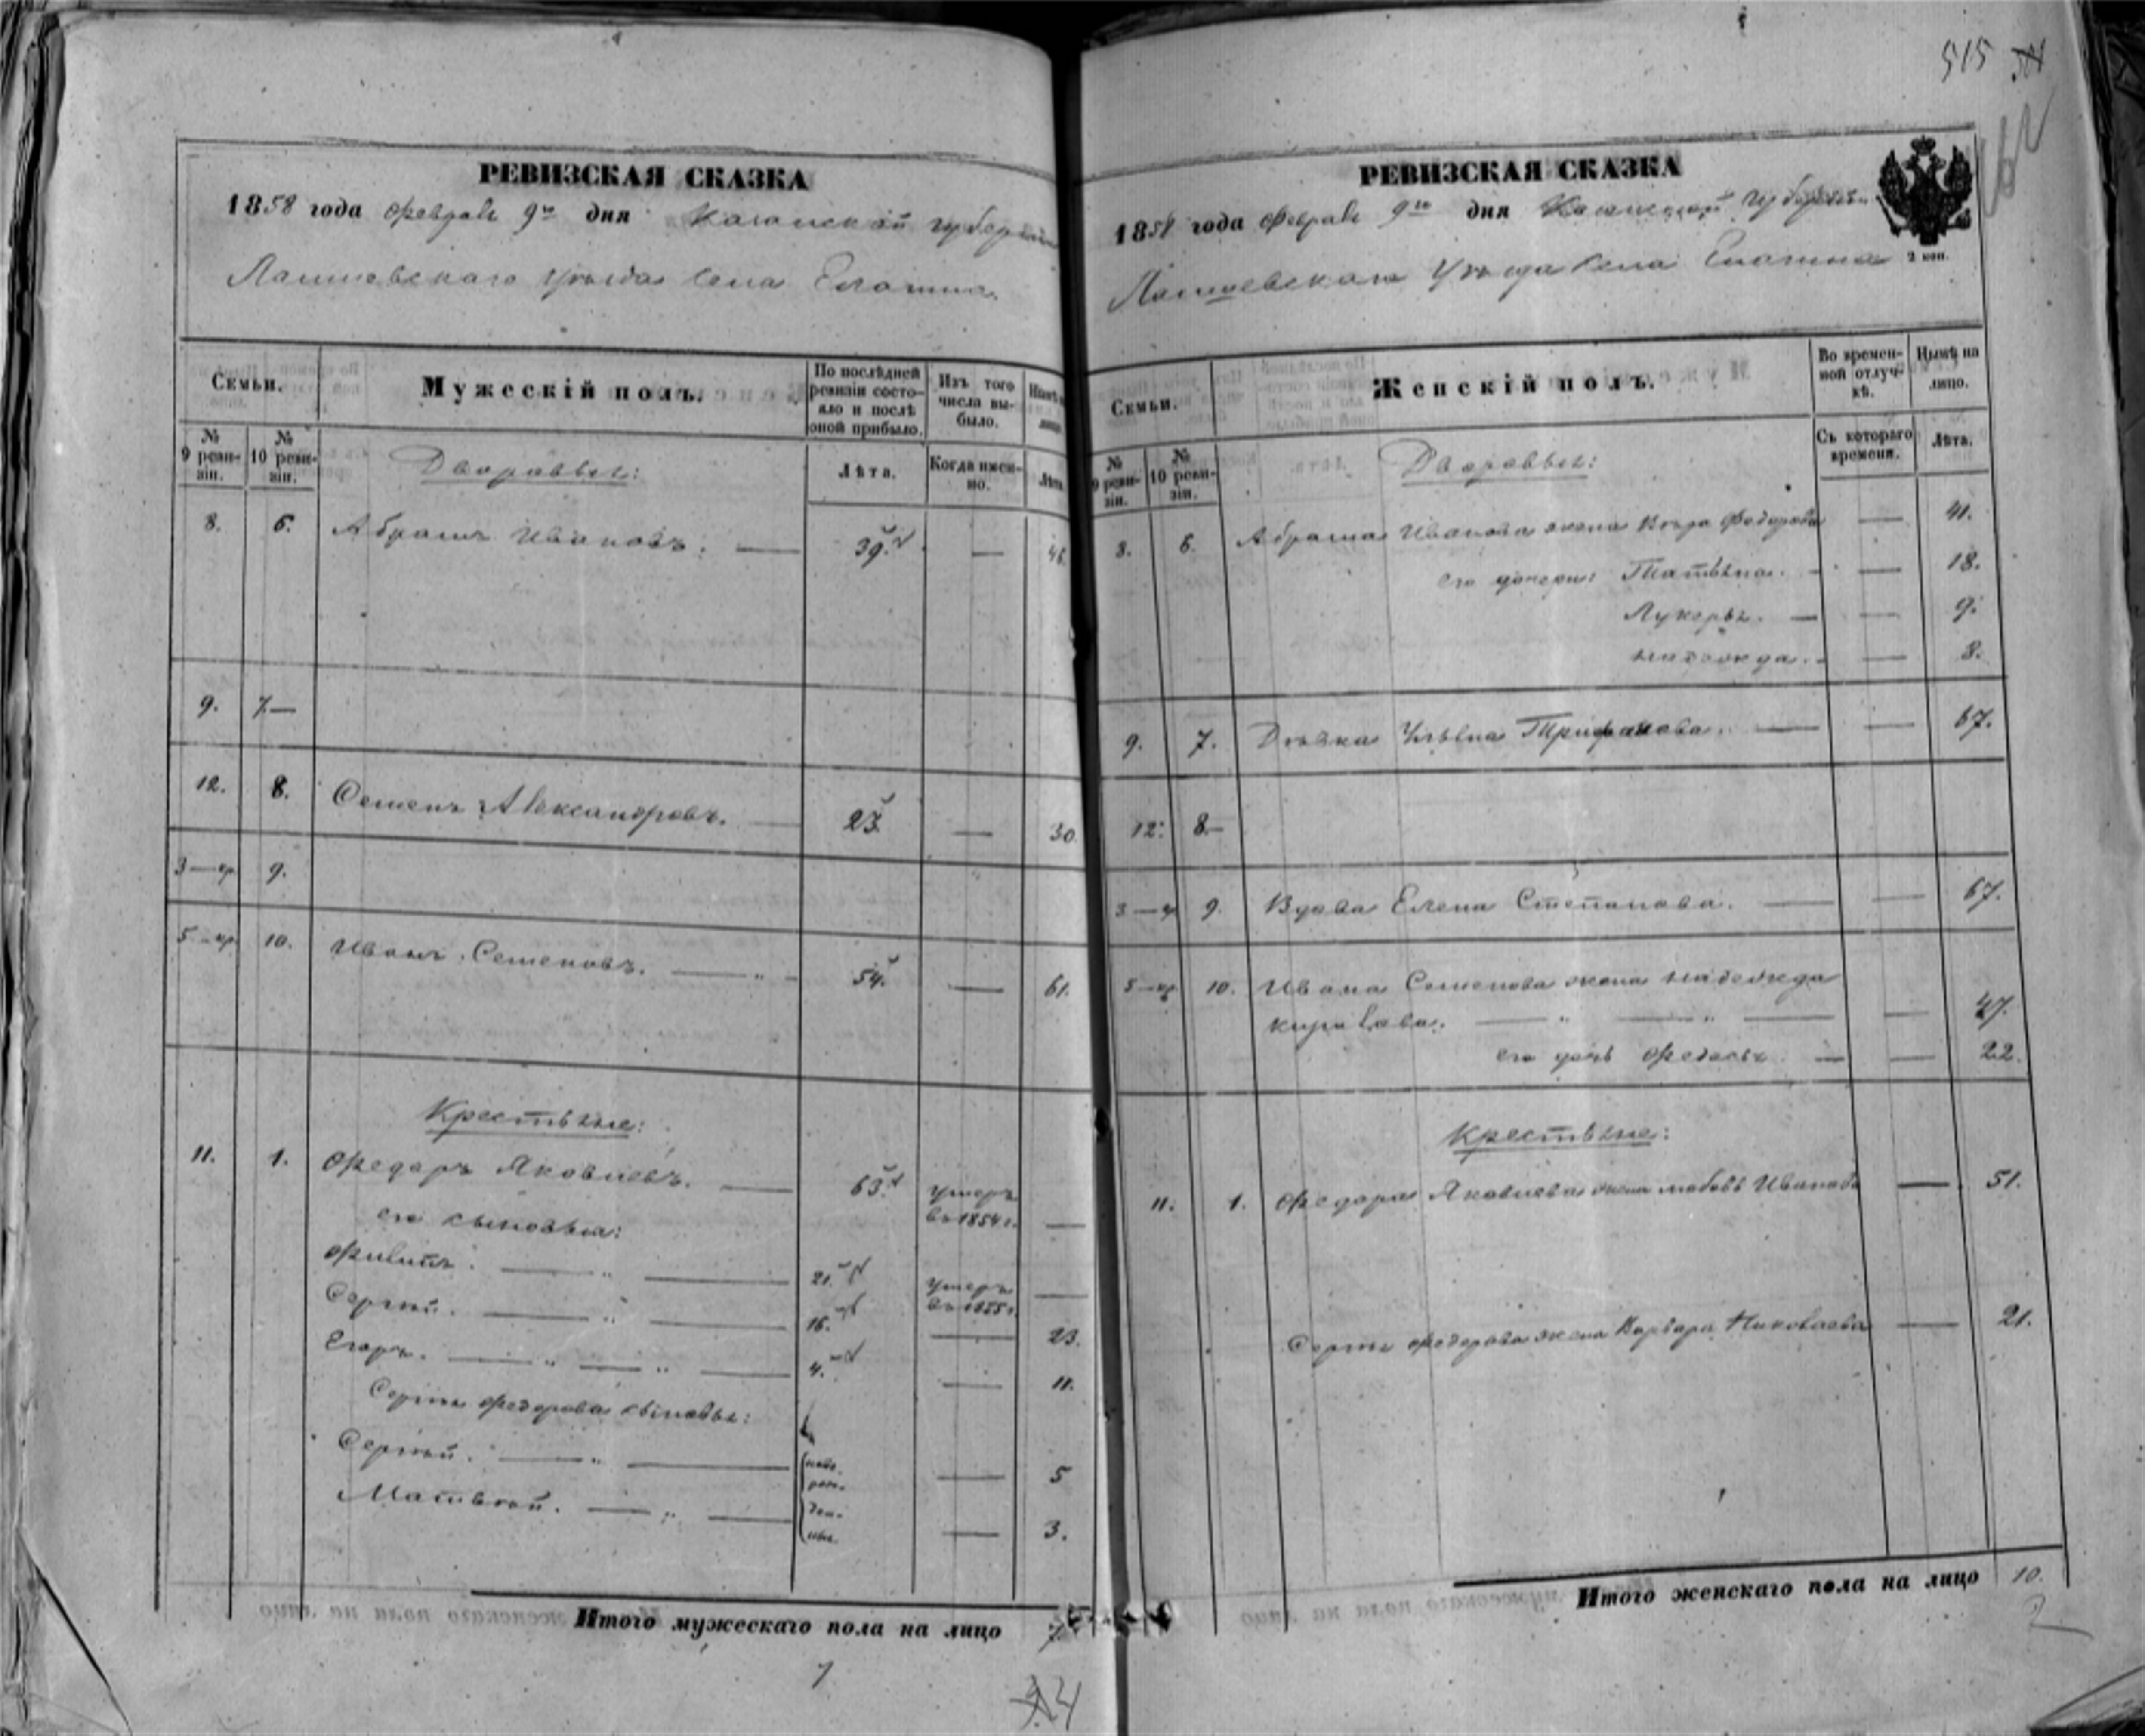 515
РЕВИЗСКАЯ СКАЗКА
1858 года февраля 9го дня Казанской губернии
Лаишевскаго уѣзда села Емашна
Семьи.
Мужескій полъ.
По послѣдней ревизіи состояло и послѣ оной прибыло.
Изъ того числа выбыло.
Нынѣ на лицо.
№ 9 ревизіи.
№ 10 ревизіи.
Дворовые:
Лѣта.
Когда именно.
Лѣта.
8. 6. Абрамъ Ивановъ. — 39. — 46.
9. 7. —
12. 8. Семенъ Александровъ. — 23. — 30
3—кр. 9.
5—кр. 10. Иванъ Семеновъ. — " — 54. — 61.
Крестьяне:
11. 1. Федоръ Яковлевъ. — 63. умеръ въ 1854 г. —
его сыновья:
Филипъ. — " — 21. умеръ въ 1855 г. —
Сергѣй. — " — 16. — 23.
Егоръ. — " — " — 4. — 11.
Сергѣя Федорова сыновья:
Сергѣй. — " — новорож- — 5
Матвѣй. — " — денные — 3.
Итого мужескаго пола на лицо 7.
РЕВИЗСКАЯ СКАЗКА
1858 года февраля 9го дня Казанской губерніи
Лаишевскаго уѣзда села Емашна
2 коп.
Семьи.
Женскій полъ.
Во временной отлучкѣ.
Нынѣ на лицо.
№ 9 ревизіи.
№ 10 ревизіи.
Дворовые:
Съ котораго времени.
Лѣта.
8. 6. Абрама Иванова жена Вѣра Федорова — 41.
его дочери: Татьяна. — — 18.
Лукерья. — — 9.
Надежда. — — 8.
9. 7. Дѣвка Ульяна Трифанова. — — 67.
12. 8. —
3—кр. 9. Вдова Елена Степанова. — — 67.
5—кр. 10. Ивана Семенова жена Надежда
Кирилова. — " — " — — 47.
его дочь Федосья — — 22.
Крестьяне:
11. 1. Федора Яковлева жена Любовь Иванова — 51.
Сергѣя Федорова жена Варвара Николаева — 21.
Итого женскаго пола на лицо 10.